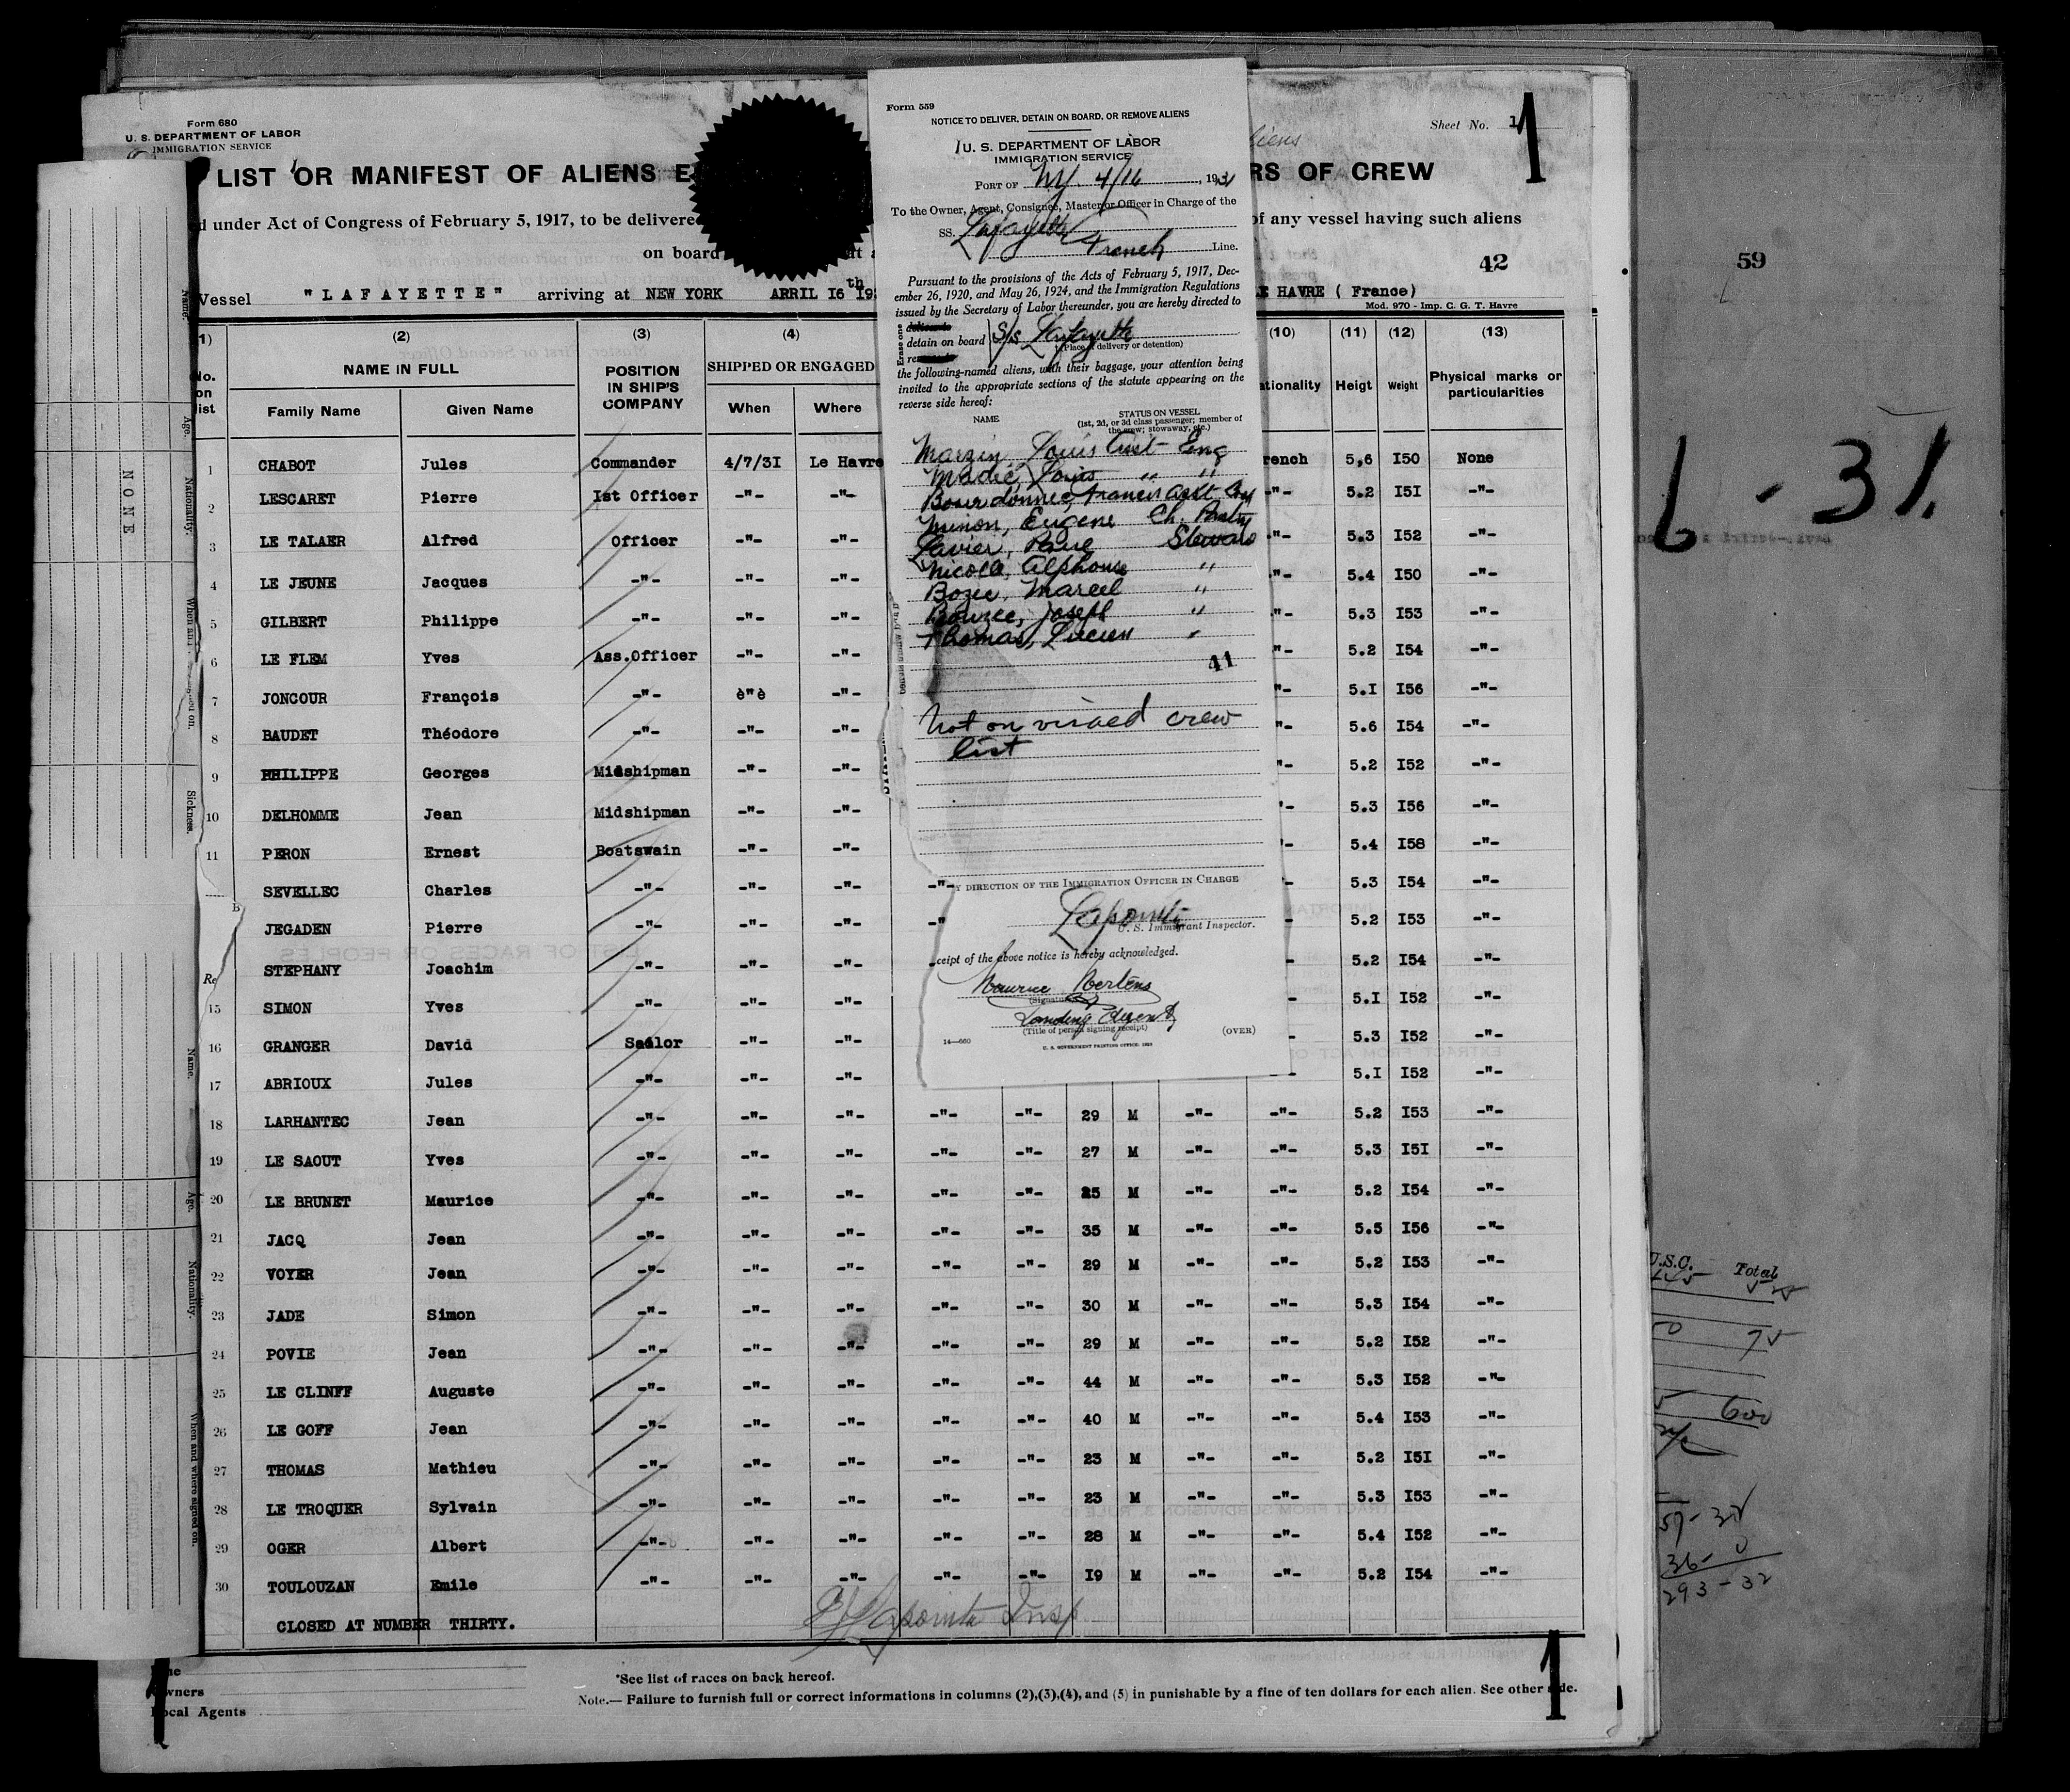 Form 680
U. S. DEPARTMENT OF LABOR
IMMIGRATION SERVICE
Sheet No. 1
1
LIST OR MANIFEST OF ALIENS E
RS OF CREW
d under Act of Congress of February 5, 1917, to be delivere
of any vessel having such aliens
on board
42
Vessel "LAFAYETTE" arriving at NEW YORK APRIL I6th 19
LE HAVRE ( France)
Mod. 970 - Imp. C. G. T. Havre
Form 559
NOTICE TO DELIVER, DETAIN ON BOARD, OR REMOVE ALIENS
U. S. DEPARTMENT OF LABOR
IMMIGRATION SERVICE
PORT OF NY. 4/16, 1931
To the Owner, Agent, Consignee, Master or Officer in Charge of the
SS. Lafayette
French Line.
Pursuant to the provisions of the Acts of February 5, 1917, Dec-
ember 26, 1920, and May 26, 1924, and the Immigration Regulations
issued by the Secretary of Labor thereunder, you are hereby directed to
Erase one
detain on board S/s Lafayette
(Place of delivery or detention)
the following-named aliens, with their baggage, your attention being
invited to the appropriate sections of the statute appearing on the
reverse side hereof:
NAME STATUS ON VESSEL
(1st, 2d, or 3d class passenger; member of
the crew; stowaway, etc.)
Marzin, Louis Asst Eng
Madec, Louis " "
Bourdonnec, Francis Asst
Minon, Eugene Ch. Pantry
Lavier, Steward
Nicolle, Alphonse "
Bozec, Marcel "
Bourree, Joseph "
Thomas, Lucien "
41
Not on visaed crew
list
Y DIRECTION OF THE IMMIGRATION OFFICER IN CHARGE
Lapointe
U. S. Immigrant Inspector.
ceipt of the above notice is hereby acknowledged.
Maurice Mertens
Landing Agent
(Title of person signing receipt)
(OVER)
14—660
U. S. GOVERNMENT PRINTING OFFICE: 1929
(2) (3) (4) (10) (11) (12) (13)
No. on list NAME IN FULL POSITION IN SHIP'S COMPANY SHIPPED OR ENGAGED Heigt Weight Physical marks or particularities
Family Name Given Name When Where
1 CHABOT Jules Commander 4/7/3I Le Havre rench 5,6 I50 None
2 LESCARET Pierre Ist Officer -"- -"- -"- 5.2 I5I -"-
3 LE TALAER Alfred Officer -"- -"- -"- 5.3 I52 -"-
4 LE JEUNE Jacques -"- -"- -"- "- 5.4 I50 -"-
5 GILBERT Philippe -"- -"- -"- "- 5.3 I53 -"-
6 LE FLEM Yves Ass.Officer -"- -"- "- 5.2 I54 -"-
7 JONCOUR François -"- è"è -"- "- 5.I I56 -"-
8 BAUDET Théodore -"- -"- -"- "- 5.6 I54 -"-
9 PHILIPPE Georges Midshipman -"- -"- "- 5.2 I52 -"-
10 DELHOMME Jean Midshipman -"- -"- "- 5.3 I56 -"-
11 PERON Ernest Boatswain -"- -"- 5.4 I58 -"-
SEVELLEC Charles -"- -"- -"- -"- 5.3 I54 -"-
JEGADEN Pierre -"- -"- -"- -" 5.2 I53 -"-
STEPHANY Joachim -"- -"- -"- 5.2 I54 -"-
15 SIMON Yves -"- -"- -"- 5.I I52 -"-
16 GRANGER David Sailor -"- -"- 5.3 I52 -"-
17 ABRIOUX Jules -"- -"- -"- 5.I I52 -"-
18 LARHANTEC Jean -"- -"- -"- -"- -"- 29 M -"- -"- 5.2 I53 -"-
19 LE SAOUT Yves -"- -"- -"- -"- -"- 27 M -"- -"- 5.3 I5I -"-
20 LE BRUNET Maurice -"- -"- -"- -"- -"- 25 M -"- -"- 5.2 I54 -"-
21 JACQ Jean -"- -"- -"- -"- -"- 35 M -"- -"- 5.5 I56 -"-
22 VOYER Jean -"- -"- -"- -"- -"- 29 M -"- -"- 5.2 I53 -"-
23 JADE Simon -"- -"- -"- -"- -"- 30 M -"- -"- 5.3 I54 -"-
24 POVIE Jean -"- -"- -"- -"- -"- 29 M -"- -"- 5.2 I52 -"-
25 LE CLINFF Auguste -"- -"- -"- -"- -"- 44 M -"- -"- 5.3 I52 -"-
26 LE GOFF Jean -"- -"- -"- -"- -"- 40 M -"- -"- 5.4 I53 -"-
27 THOMAS Mathieu -"- -"- -"- -"- -"- 23 M -"- -"- 5.2 I5I -"-
28 LE TROQUER Sylvain -"- -"- -"- -"- -"- 23 M -"- -"- 5.3 I53 -"-
29 OGER Albert -"- -"- -"- -"- -"- 28 M -"- -"- 5.4 I52 -"-
30 TOULOUZAN Emile -"- -"- -"- -"- -"- I9 M -"- -"- 5.2 I54 -"-
CLOSED AT NUMBER THIRTY.
Lapointe Insp
*See list of races on back hereof.
Note.— Failure to furnish full or correct informations in columns (2),(3),(4), and (5) in punishable by a fine of ten dollars for each alien. See other side.
Owners
Local Agents
1
Name.
Age.
Nationality.
Sickness.
NONE
Name.
Age.
Nationality.
When and where signed on.
59
6 - 31.
U.S.C. Total
75
600
36- 0
293 - 32